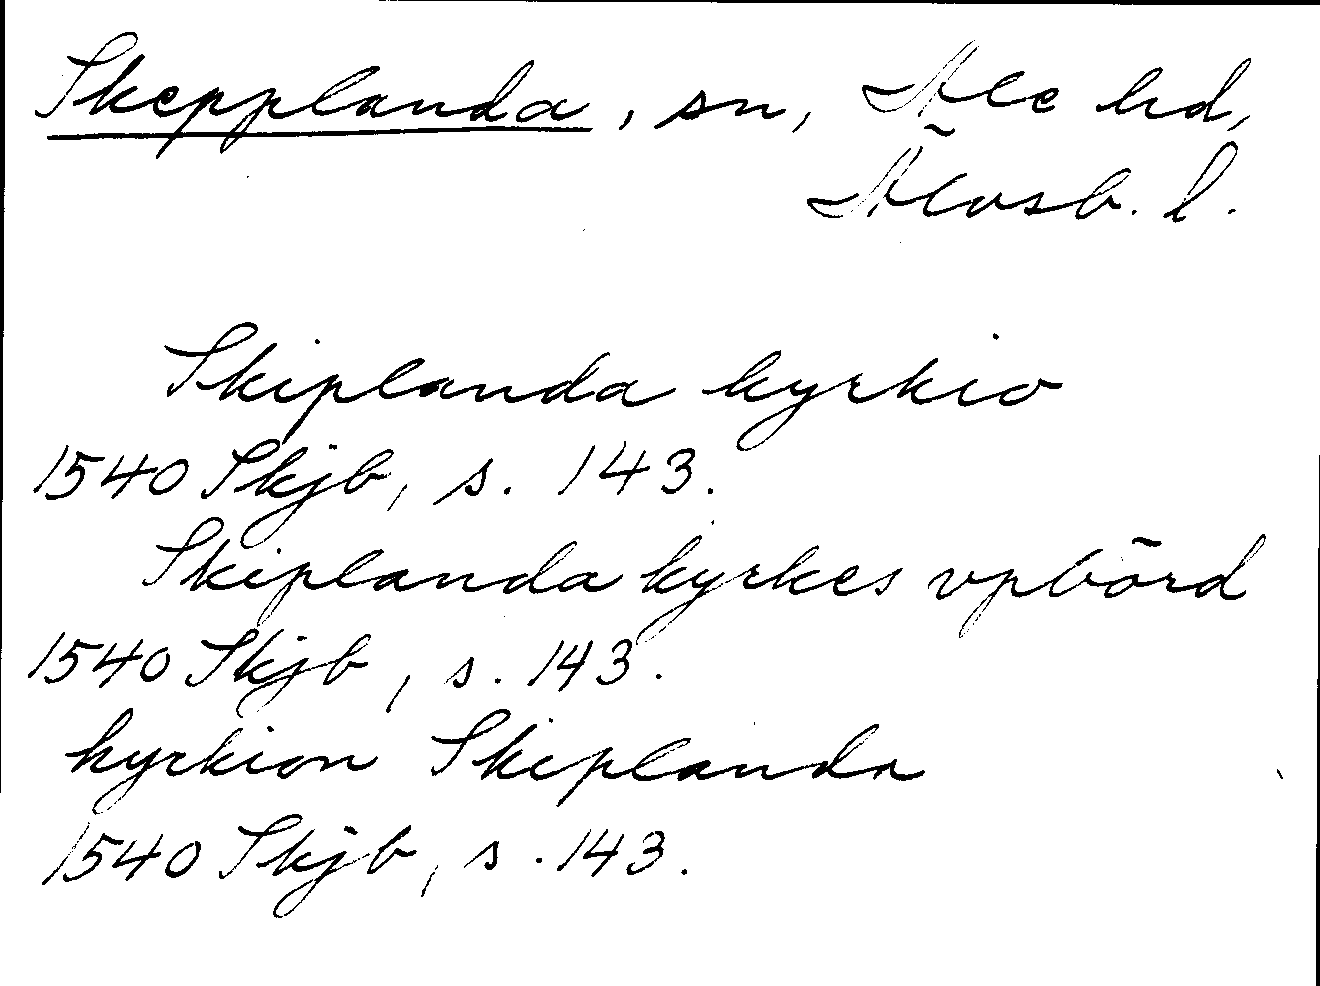 Skepplanda, sn, Ale hd,
Älvsb. l.
Skiplanda kyrkio
1540 Skjb, s. 143.
Skiplanda kyrkes vpbörd
1540 Skjb, s. 143.
kyrkion Skiplanda
1540 Skjb, s. 143.